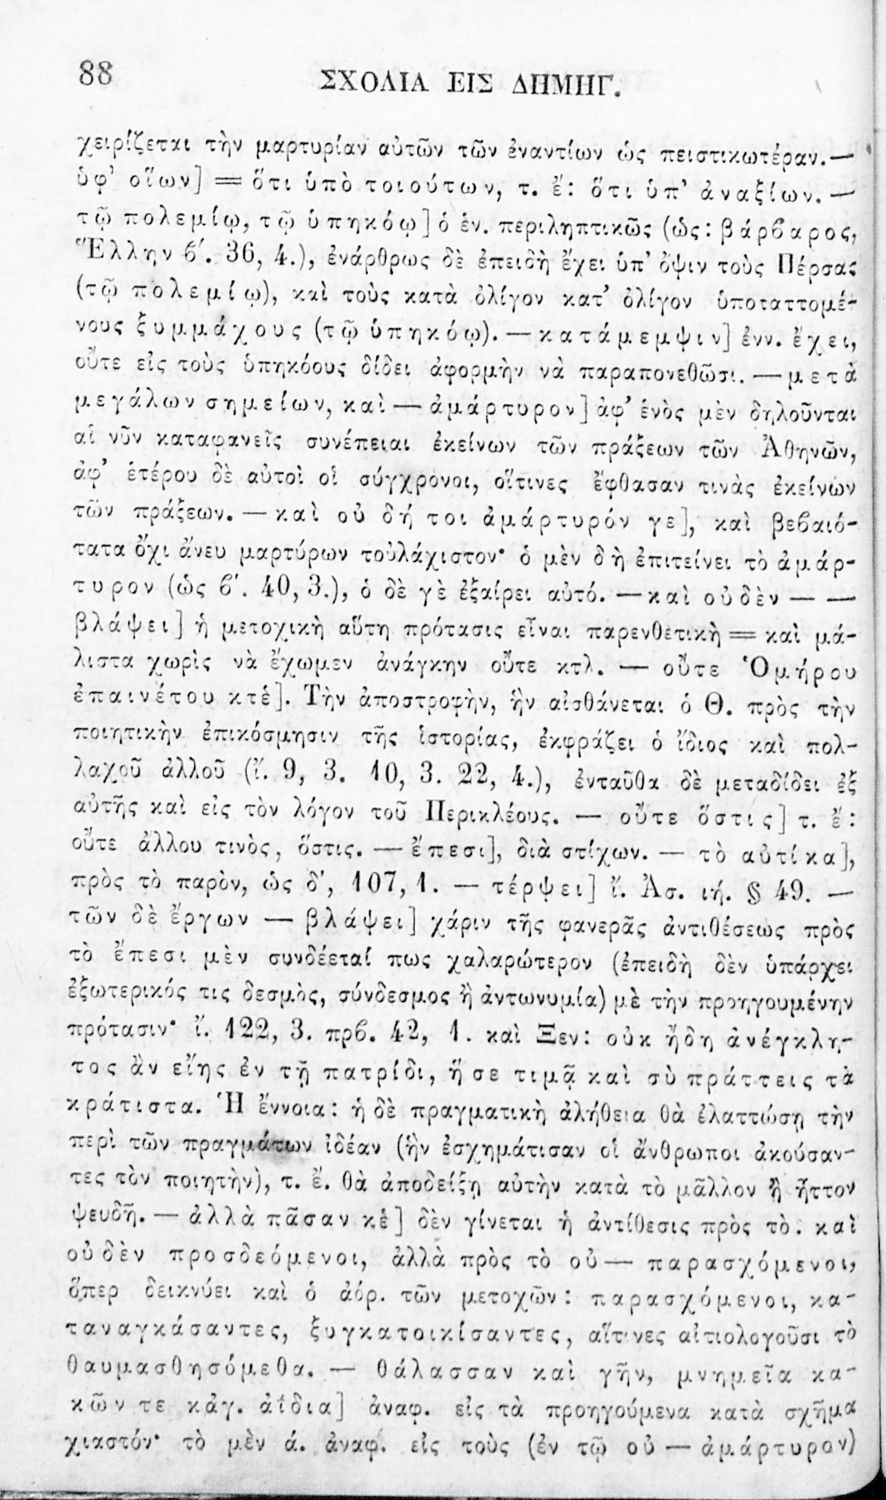 88 ΣΧΟΛΙΑ ΕΙΣ ΔΗΜΗΓ.
χειρίζεται τὴν μαρτυρίαν αὐτῶν τῶν ἐναντίων ὡς πειστικωτέραν.—
ὑφ' οἵων] = ὅτι ὑπὸ τοιούτων, τ. ἔ: ὅτι ὑπ' ἀναξίων.—
τῷ πολεμίῳ, τῷ ὑπηκόῳ] ὁ ἑν. περιληπτικῶς (ὡς: βάρβαρος,
Ἕλλην ϐ'. 36, 4.), ἐνάρθρως δὲ ἐπειδὴ ἔχει ὑπ' ὄψιν τοὺς Πέρσας
(τῷ πολεμίῳ), καὶ τοὺς κατὰ ὀλίγον κατ' ὀλίγον ὑποταττομέ-
νους ξυμμάχους (τῷ ὑπηκόῳ). — κατάμεμψιν] ἐνν. ἔχει,
οὔτε εἰς τοὺς ὑπηκόους δίδει ἀφορμὴν νὰ παραπονεθῶσι. — μετὰ
μεγάλων σημείων, καὶ — ἀμάρτυρον] ἀφ' ἑνὸς μὲν δηλοῦνται
αἱ νῦν καταφανεῖς συνέπειαι ἐκείνων τῶν πράξεων τῶν Ἀθηνῶν,
ἀφ' ἑτέρου δὲ αὐτοὶ οἱ σύγχρονοι, οἵτινες ἔφθασαν τινὰς ἐκείνων
τῶν πράξεων. — καὶ οὐ δή τοι ἀμάρτυρόν γε], καὶ βεβαιό-
τατα ὄχι ἄνευ μαρτύρων τοὐλάχιστον· ὁ μὲν δὴ ἐπιτείνει τὸ ἀμάρ-
τυρον (ὡς ϐ'. 40, 3.), ὁ δὲ γὲ ἐξαίρει αὐτό. — καὶ οὐδὲν — —
βλάψει] ἡ μετοχικὴ αὕτη πρότασις εἶναι παρενθετικὴ = καὶ μά-
λιστα χωρὶς νὰ ἔχωμεν ἀνάγκην οὔτε κτλ. — οὔτε Ὁμήρου
ἐπαινέτου κτἑ]. Τὴν ἀποστροφὴν, ἣν αἰσθάνεται ὁ Θ. πρὸς τὴν
ποιητικὴν ἐπικόσμησιν τῆς ἱστορίας, ἐκφράζει ὁ ἴδιος καὶ πολ-
λαχοῦ ἀλλοῦ (ἴ. 9, 3. 10, 3. 22, 4.), ἐνταῦθα δὲ μεταδίδει ἐξ
αὐτῆς καὶ εἰς τὸν λόγον τοῦ Περικλέους. — οὔτε ὅστις] τ. ἔ:
οὔτε ἄλλου τινὸς, ὅστις. — ἔπεσι], διὰ στίχων. — τὸ αὐτίκα],
πρὸς τὸ παρὸν, ὡς δ', 107, 1. — τέρψει] ἴ. Ἀσ. ιή. § 49. —
τῶν δὲ ἔργων — βλάψει] χάριν τῆς φανερᾶς ἀντιθέσεως πρὸς
τὸ ἔπεσι μὲν συνδέεταί πως χαλαρώτερον (ἐπειδὴ δὲν ὑπάρχει
ἐξωτερικός τις δεσμὸς, σύνδεσμος ἢ ἀντωνυμία) μὲ τὴν προηγουμένην
πρότασιν· ἴ. 122, 3. πρϐ. 42, 1. καὶ Ξεν: οὐκ ἤδη ἀνέγκλη-
τος ἂν εἴης ἐν τῇ πατρίδι, ἥ σε τιμᾷ καὶ σὺ πράττεις τὰ
κράτιστα. Ἡ ἔννοια: ἡ δὲ πραγματικὴ ἀλήθεια θὰ ἐλαττώσῃ τὴν
περὶ τῶν πραγμάτων ἰδέαν (ἣν ἐσχημάτισαν οἱ ἄνθρωποι ἀκούσαν-
τες τὸν ποιητὴν), τ. ἔ. θὰ ἀποδείξῃ αὐτὴν κατὰ τὸ μᾶλλον ἢ ἧττον
ψευδῆ. — ἀλλὰ πᾶσαν κἑ] δὲν γίνεται ἡ ἀντίθεσις πρὸς τὸ: καὶ
οὐδὲν προσδεόμενοι, ἀλλὰ πρὸς τὸ οὐ — παρασχόμενοι,
ὅπερ δεικνύει καὶ ὁ ἀόρ. τῶν μετοχῶν: παρασχόμενοι, κα-
ταναγκάσαντες, ξυγκατοικίσαντες, αἵτινες αἰτιολογοῦσι τὸ
θαυμασθησόμεθα. — θάλασσαν καὶ γῆν, μνημεῖα κα-
κῶν τε κἀγ. ἀΐδια] ἀναφ. εἰς τὰ προηγούμενα κατὰ σχῆμα
χιαστόν· τὸ μὲν ά. ἀναφ. εἰς τοὺς (ἐν τῷ οὐ — ἀμάρτυρον)